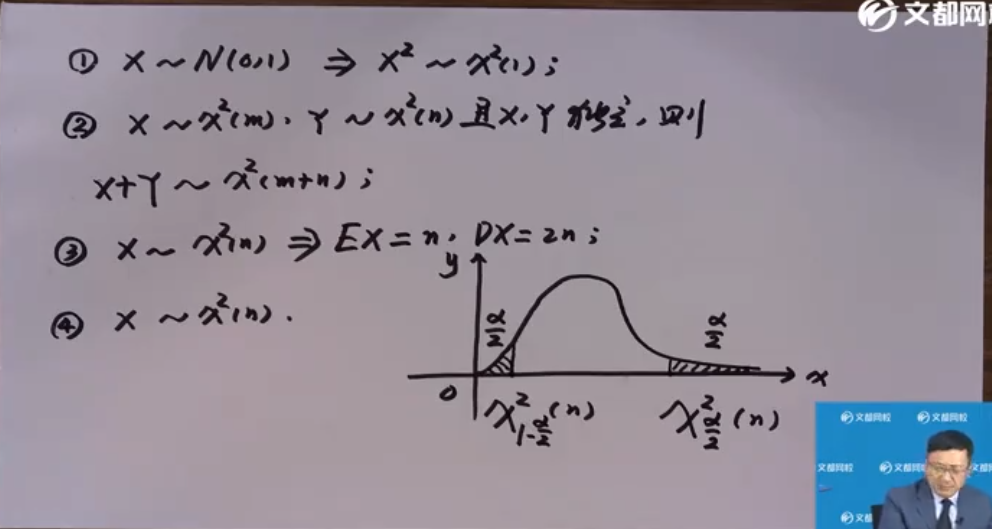 文都网校
① X ~ N(0,1) ⇒ X² ~ χ²(1);
② X ~ χ²(m), Y ~ χ²(n) 且 X, Y 独立, 则
X+Y ~ χ²(m+n);
③ X ~ χ²(n) ⇒ EX = n, DX = 2n;
④ X ~ χ²(n).
y
α/2
α/2
0
x
χ²_{1-α/2}(n)
χ²_{α/2}(n)
文都网校 文都网校
文都网校 文都网 文都网
文